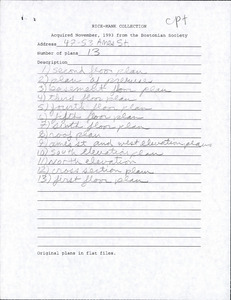 cpt
RICE-MANK COLLECTION
Acquired November, 1993 from the Bostonian Society
Address 47-53 Ames St
Number of plans 13
Description
1) second floor plan
2) plan of premises
3) basement floor plan
4) third floor plan
5) fourth floor plan
6) fifth floor plan
7) sixth floor plan
8) roof plan
9) and west elevation plans
10) South elevation plan
11) North elevation
12) cross section plan
13) first floor plan
Original plans in flat files.